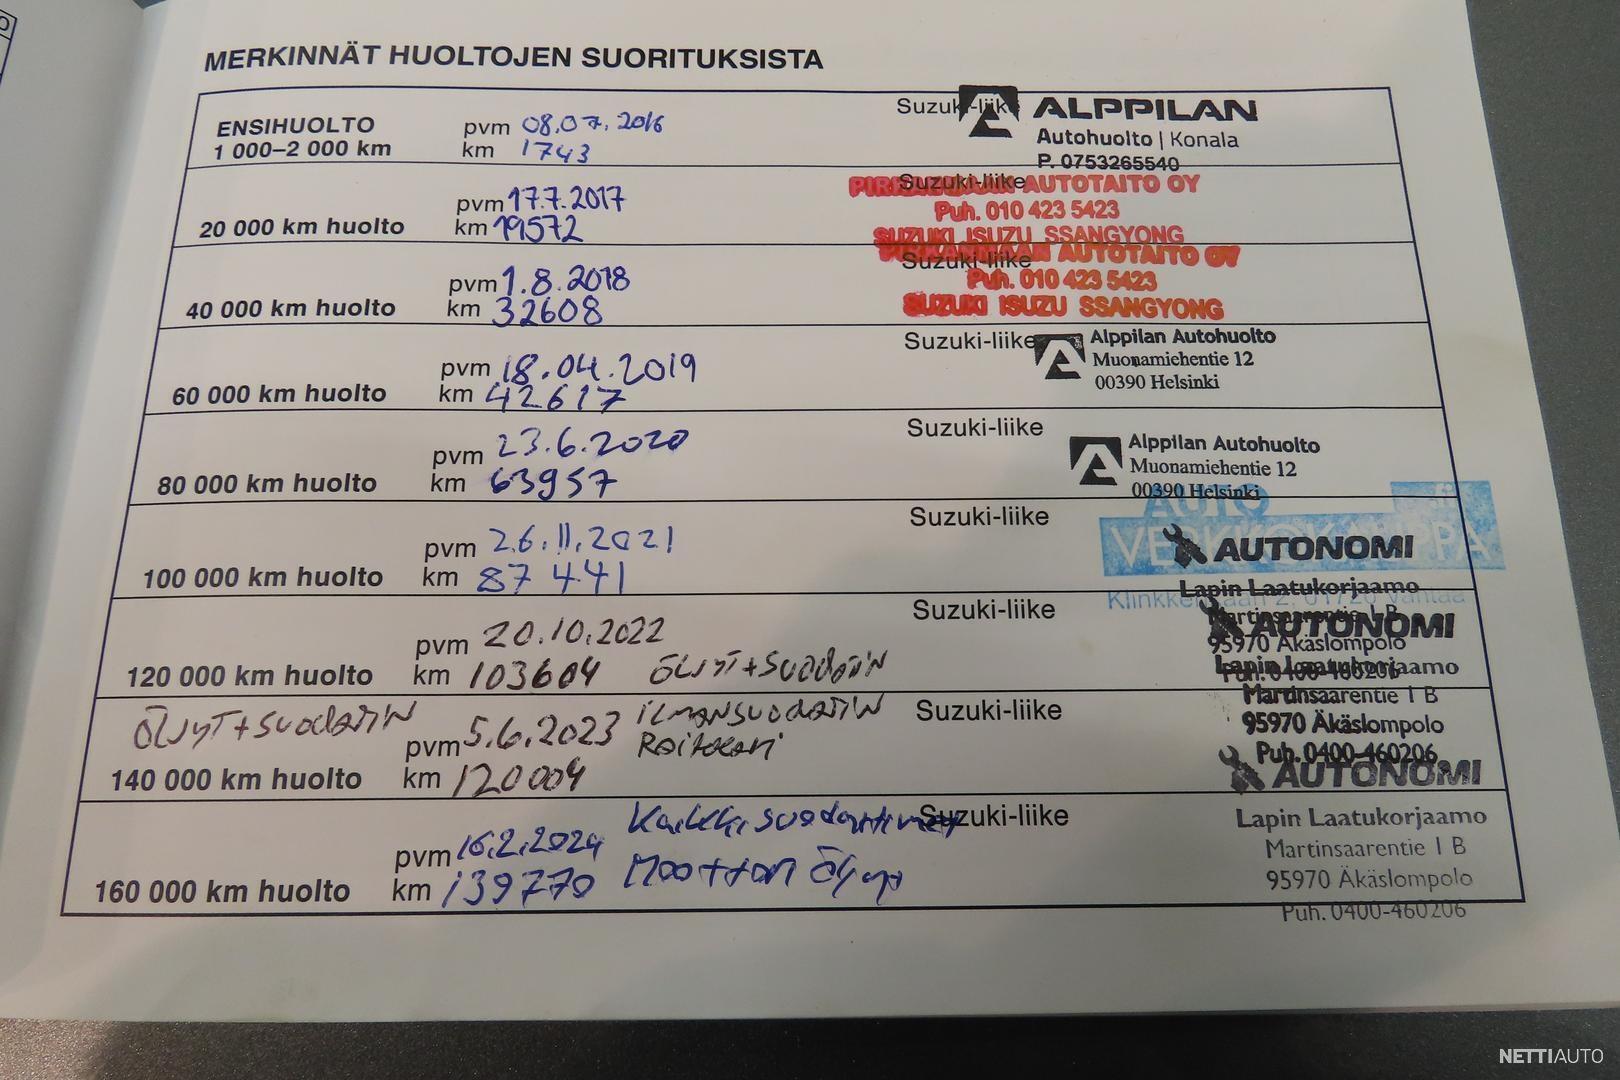 MERKINNÄT HUOLTOJEN SUORITUKSISTA
ENSIHUOLTO
1 000–2 000 km
pvm 08.07.2016
km 1743
Suzuki-liike
ALPPILAN
Autohuolto | Konala
P. 0753265540
20 000 km huolto
pvm 17.7.2017
km 19572
Suzuki-liike
AUTOTAITO OY
Puh. 010 423 5423
SUZUKI ISUZU SSANGYONG
40 000 km huolto
pvm 1.8.2018
km 32608
Suzuki-liike
PIRKANMAAN AUTOTAITO OY
Puh. 010 423 5423
SUZUKI ISUZU SSANGYONG
60 000 km huolto
pvm 18.04.2019
km 42617
Suzuki-liike
Alppilan Autohuolto
Muonamiehentie 12
00390 Helsinki
80 000 km huolto
pvm 23.6.2020
km 63957
Suzuki-liike
Alppilan Autohuolto
Muonamiehentie 12
00390 Helsinki
100 000 km huolto
pvm 26.11.2021
km 87 441
Suzuki-liike
AUTO
.fi
VERKKOKAUPPA
AUTONOMI
Lapin Laatukorjaamo
Martinsaarentie 1 B
95970 Äkäslompolo
Puh. 0400-460206
120 000 km huolto
pvm 20.10.2022
km 103604 ÖLJYT+SUODATIN
Suzuki-liike
AUTONOMI
Lapin Laatukorjaamo
Martinsaarentie 1 B
95970 Äkäslompolo
Puh. 0400-460206
ÖLJYT+SUODATIN
140 000 km huolto
pvm 5.6.2023 ILMANSUODATIN
km 120004
Suzuki-liike
AUTONOMI
Lapin Laatukorjaamo
Martinsaarentie 1 B
95970 Äkäslompolo
Puh. 0400-460206
160 000 km huolto
pvm 16.2.2024 Kaikki suodattimet
km 139770 Moottori Öljy
Suzuki-liike
NETTIAUTO